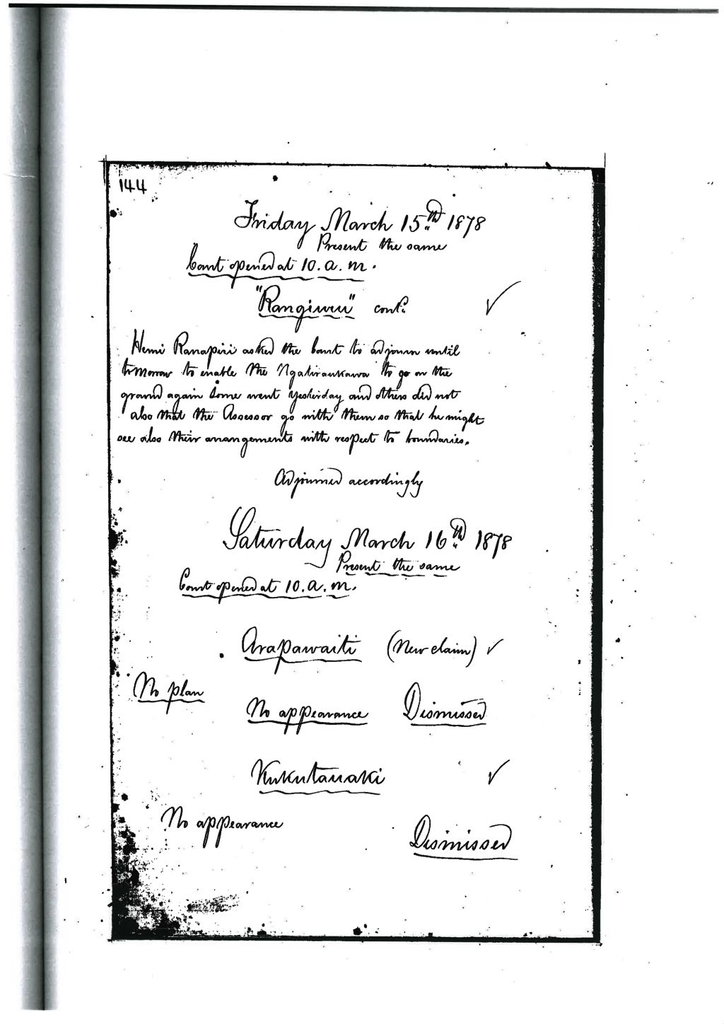 144
Friday March 15th 1878
Present the same
Court opened at 10. a. m.
"Rangiuru" cont. ✓
Hemi Ranapiri asked the Court to adjourn until
tomorrow to enable the Ngatiraukawa to go on the
ground again Some went yesterday and others did not
also that the Assessor go with them so that he might
see also their arrangements with respect to boundaries.
Adjourned accordingly
Saturday March 16th 1878
Present the same
Court opened at 10. a. m.
Arapawaiti (New claim) ✓
No plan
No appearance Dismissed
Kukutauaki ✓
No appearance
Dismissed